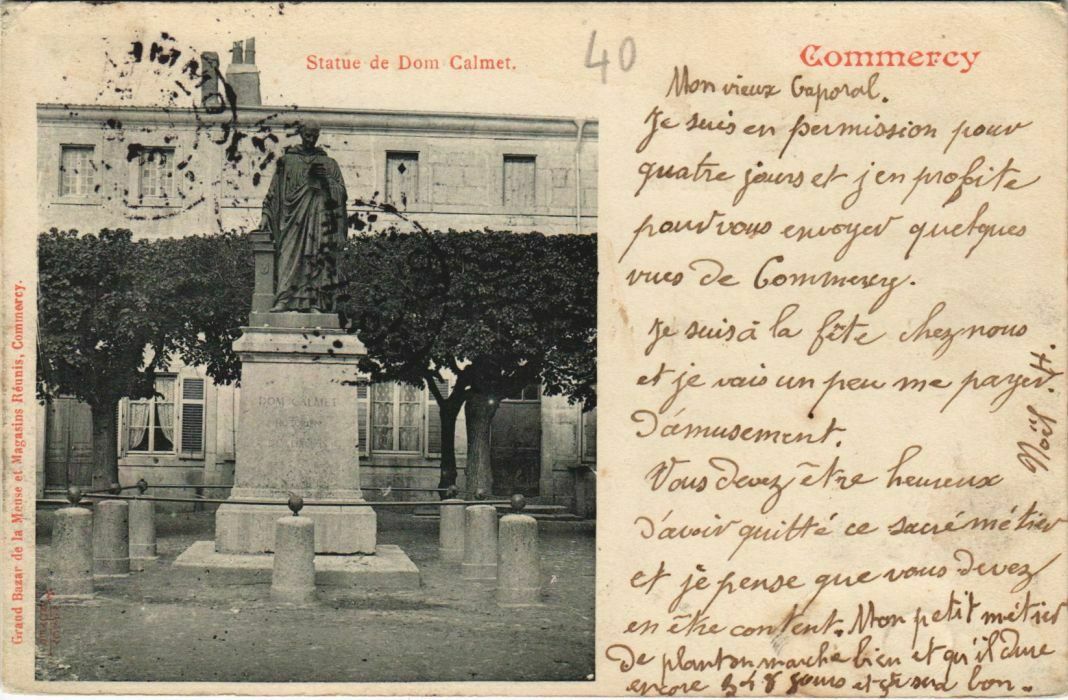 Statue de Dom Calmet.
40
Commercy
Mon vieux Caporal.
Je suis en permission pour
quatre jours et j'en profite
pour vous envoyer quelques
vues de Commercy.
Je suis à la fête chez nous
et je vais un peu me payer
d'amusement.
Vous devez être heureux
d'avoir quitté ce sacré métier
et je pense que vous devez
en être content. Mon petit métier
de planton marche bien et qu'il dure
encore jours et ça sera bon.
Noël H.
Grand Bazar de la Meuse et Magasins Réunis, Commercy.
DOM CALMET